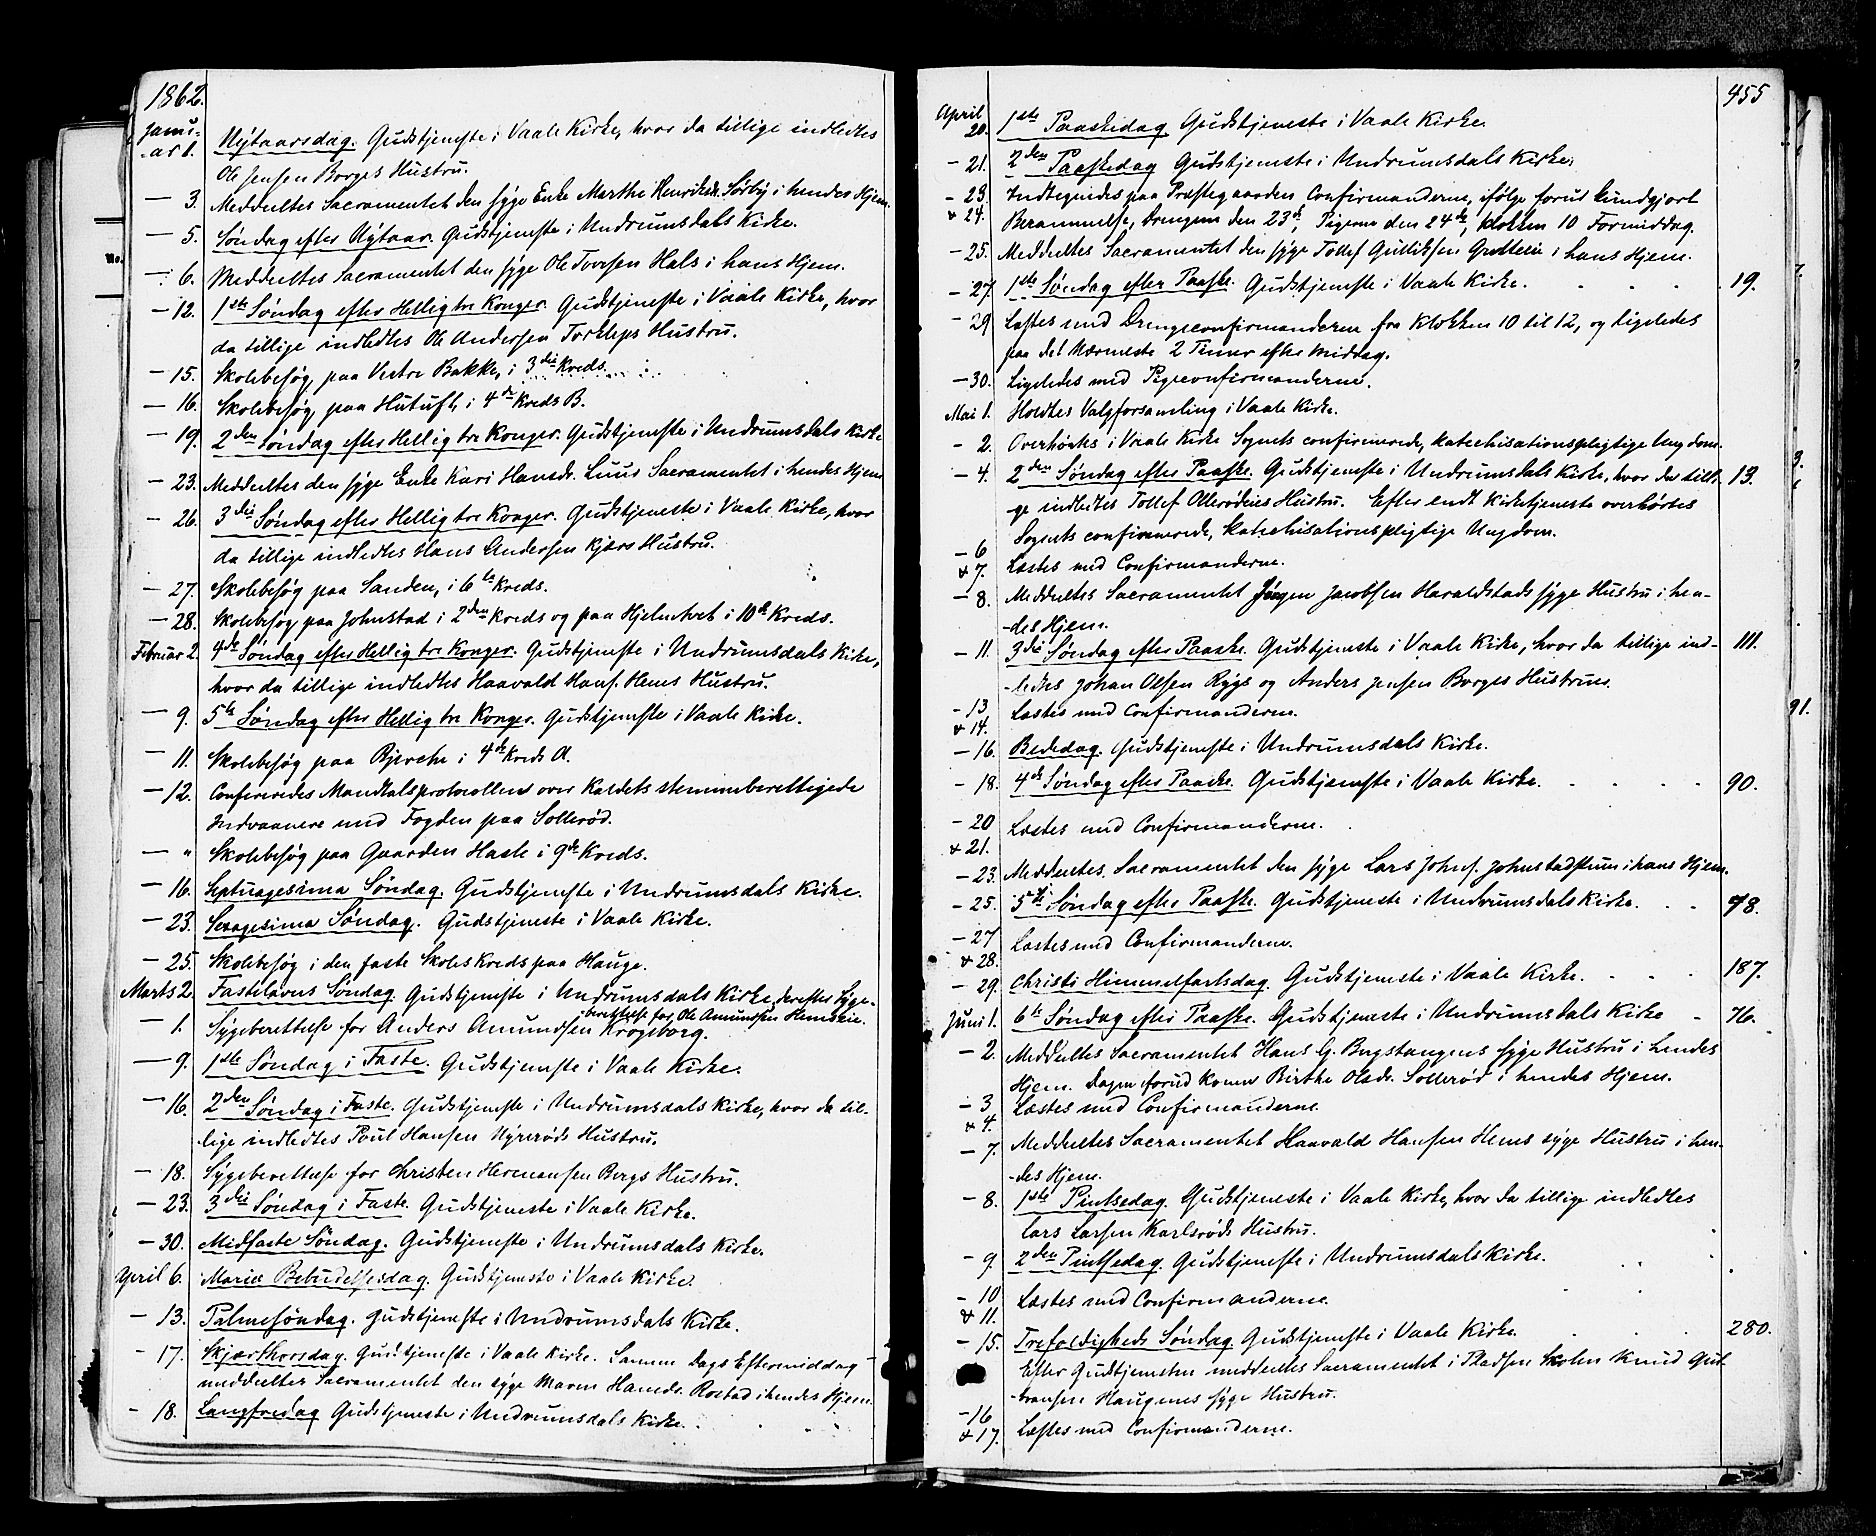 1862.
Janu-
-ar 1. Nytaarsdag. Gudstjeneste i Vaale Kirke, hvor da tillige indledtes
Ole Jensen Borges Hustru.
— 3. Meddeeltes Sacramentet den syge Enke Marthe Henriksdr. Sørby i hendes Hjem.
— 5. Søndag efter Nytaar. Gudstjeneste i Undrumsdals Kirke.
— 6. Meddeeltes Sacramentet den syge Ole Torersen Hals i hans Hjem.
— 12. 1ste Søndag efter Hellig tre Konger. Gudstjeneste i Vaale Kirke, hvor
da tillige indledtes Ole Andersen Torkleps Hustru.
— 15. Skolebesøg paa Vestre Bakke, i 3die Kreds.
— 16. Skolebesøg paa Hutuft, i 4de Kreds B.
— 19. 2den Søndag efter Hellig tre Konger. Gudstjeneste i Undrumsdals Kirke
— 23. Meddeeltes den syge Enke Kari Hansdr. Luus Sacramentet i hendes Hjem
— 26. 3die Søndag efter Hellig tre Konger. Gudstjeneste i Vaale Kirke, hvor
da tillige indledtes Hans Andersen Kjærs Hustru.
— 27. Skolebesøg paa Sanden, i 6te Kreds.
— 28. Skolebesøg paa Johnstad i 2den Kreds og paa Hjelmtvet i 10de Kreds.
Februar 2. 4de Søndag efter Hellig tre Konger. Gudstjeneste i Undrumsdals Kirke,
hvor da tillige indledtes Haavald Hans. Hems Hustru.
— 9. 5te Søndag efter Hellig tre Konger. Gudstjeneste i Vaale Kirke.
— 11. Skolebesøg paa Bjerche i 4de Kreds A.
— 12. Confereredes Mandtalsprotocollen over Kaldets stemmeberettigede
Indvaanere med Fogden paa Sollerød.
— " Skolebesøg paa Gaarden Hasle i 9de Kreds.
— 16. Septuagesima Søndag. Gudstjeneste i Undrumsdals Kirke.
— 23. Sexagesima Søndag. Gudstjeneste i Vaale Kirke.
— 25. Skolebesøg i den faste Skoles Kreds paa Hauge.
Marts 2. Fastelavns Søndag. Gudstjeneste i Undrumsdals Kirke, derefter Syge-
-berettelse for Ole Amundsen Hemseie.
— 1. Sygeberettelse for Anders Amundsen Krogsborg.
— 9. 1ste Søndag i Faste. Gudstjeneste i Vaale Kirke.
— 16. 2den Søndag i Faste. Gudstjeneste i Undrumsdals Kirke, hvor da til-
-lige indledtes Poul Hansen Nyrerøds Hustru.
— 18. Sygeberettelse for Christen Hermansen Bergs Hustru.
— 23. 3die Søndag i Faste. Gudstjeneste i Vaale Kirke.
— 30. Midfaste Søndag. Gudstjeneste i Undrumsdals Kirke.
April 6. Mariæ Bebudelsesdag. Gudstjeneste i Vaale Kirke.
— 13. Palmesøndag. Gudstjeneste i Undrumsdals Kirke.
— 17. Skjærthorsdag. Gudstjeneste i Vaale Kirke. Samme Dags Eftermiddag
meddeeltes Sacramentet den syge Maren Hansdr. Rostad i hendes Hjem.
— 18. Langfredag Gudstjeneste i Undrumsdals Kirke.
455
April
20. 1ste Paaskedag Gudstjeneste i Vaale Kirke.
— 21. 2den Paaskedag Gudstjeneste i Undrumsdals Kirke.
— 23. Indtegnedes paa Præstegaarden Confirmanderne, ifølge forud kundgjort
& 24. Berammelse, Drengene den 23de, Pigerne den 24de, Klokken 10 Formiddag.
— 25. Meddeeltes Sacramentet den syge Tollef Gulliksen i hans Hjem.
— 27. 1ste Søndag efter Paaske. Gudstjeneste i Vaale Kirke. 19.
— 29 Læstes med Drengeconfirmanderne fra Klokken 10 til 12, og ligeledes
paa det Nærmeste 2 Timer efter Middag.
— 30. Ligeledes med Pigeconfirmanderne.
Mai 1. Holdtes Valgforsamling i Vaale Kirke.
— 2. Overhørtes i Vaale Kirke Sognets confirmerede, katechisationspligtige Ungdom.
— 4. 2den Søndag efter Paaske. Gudstjeneste i Undrumsdals Kirke, hvor da tilli- 13.
ge indledtes Tollef Ollerødeies Hustru. Efter endt Kirketjeneste overhørtes
Sognets confirmerede, katechisationspligtige Ungdom.
— 6
& 7. Læstes med Confirmanderne.
— 8. Meddeeltes Sacramentet Jørgen Jacobsen Haraldstads syge Hustru i hen-
-des Hjem.
— 11. 3die Søndag efter Paaske. Gudstjeneste i Vaale Kirke, hvor da tillige ind- 111.
-ledtes Johan Olsen Rygs og Anders Jensen Borges Hustruer.
— 13
& 14. Læstes med Confirmanderne.
— 16. Bededag. Gudstjeneste i Undrumsdals Kirke.
— 18. 4de Søndag efter Paaske. Gudstjeneste i Vaale Kirke. 90.
— 20
& 21. Læstes med Confirmanderne.
— 23. Meddeeltes Sacramentet den syge Lars Johns. Johnstadstrum i hans Hjem.
— 25. 5te Søndag efter Paaske. Gudstjeneste i Undrumsdals Kirke. 78.
— 27
& 28. Læstes med Confirmanderne.
— 29. Christi Himmelfartsdag. Gudstjeneste i Vaale Kirke. 187.
Juni 1. 6te Søndag efter Paaske. Gudstjeneste i Undrumsdals Kirke 76.
— 2. Meddeeltes Sacramentet Hans G. Bugstangens syge Hustru i hendes
Hjem. Dagen forud Kone Birthe Olsdr. Sollerød i hendes Hjem.
— 3
& 4. Læstes med Confirmanderne.
— 7. Meddeeltes Sacramentet Haavald Hansen Hems syge Hustru i hen-
-des Hjem.
— 8. 1ste Pintsedag. Gudstjeneste i Vaale Kirke, hvor da tillige indledtes
Lars Larsen Karlsrøds Hustru.
— 9. 2den Pintsedag. Gudstjeneste i Undrumsdals Kirke.
— 10
& 11. Læstes med Confirmanderne.
— 15. Trefoldigheds Søndag. Gudstjeneste i Vaale Kirke. 280.
Efter Gudstjenesten meddeeltes Sacramentet i Pladsen Skolen Knud Gut-
-tormsen Haugenes syge Hustru.
— 16
& 17. Læstes med Confirmanderne.